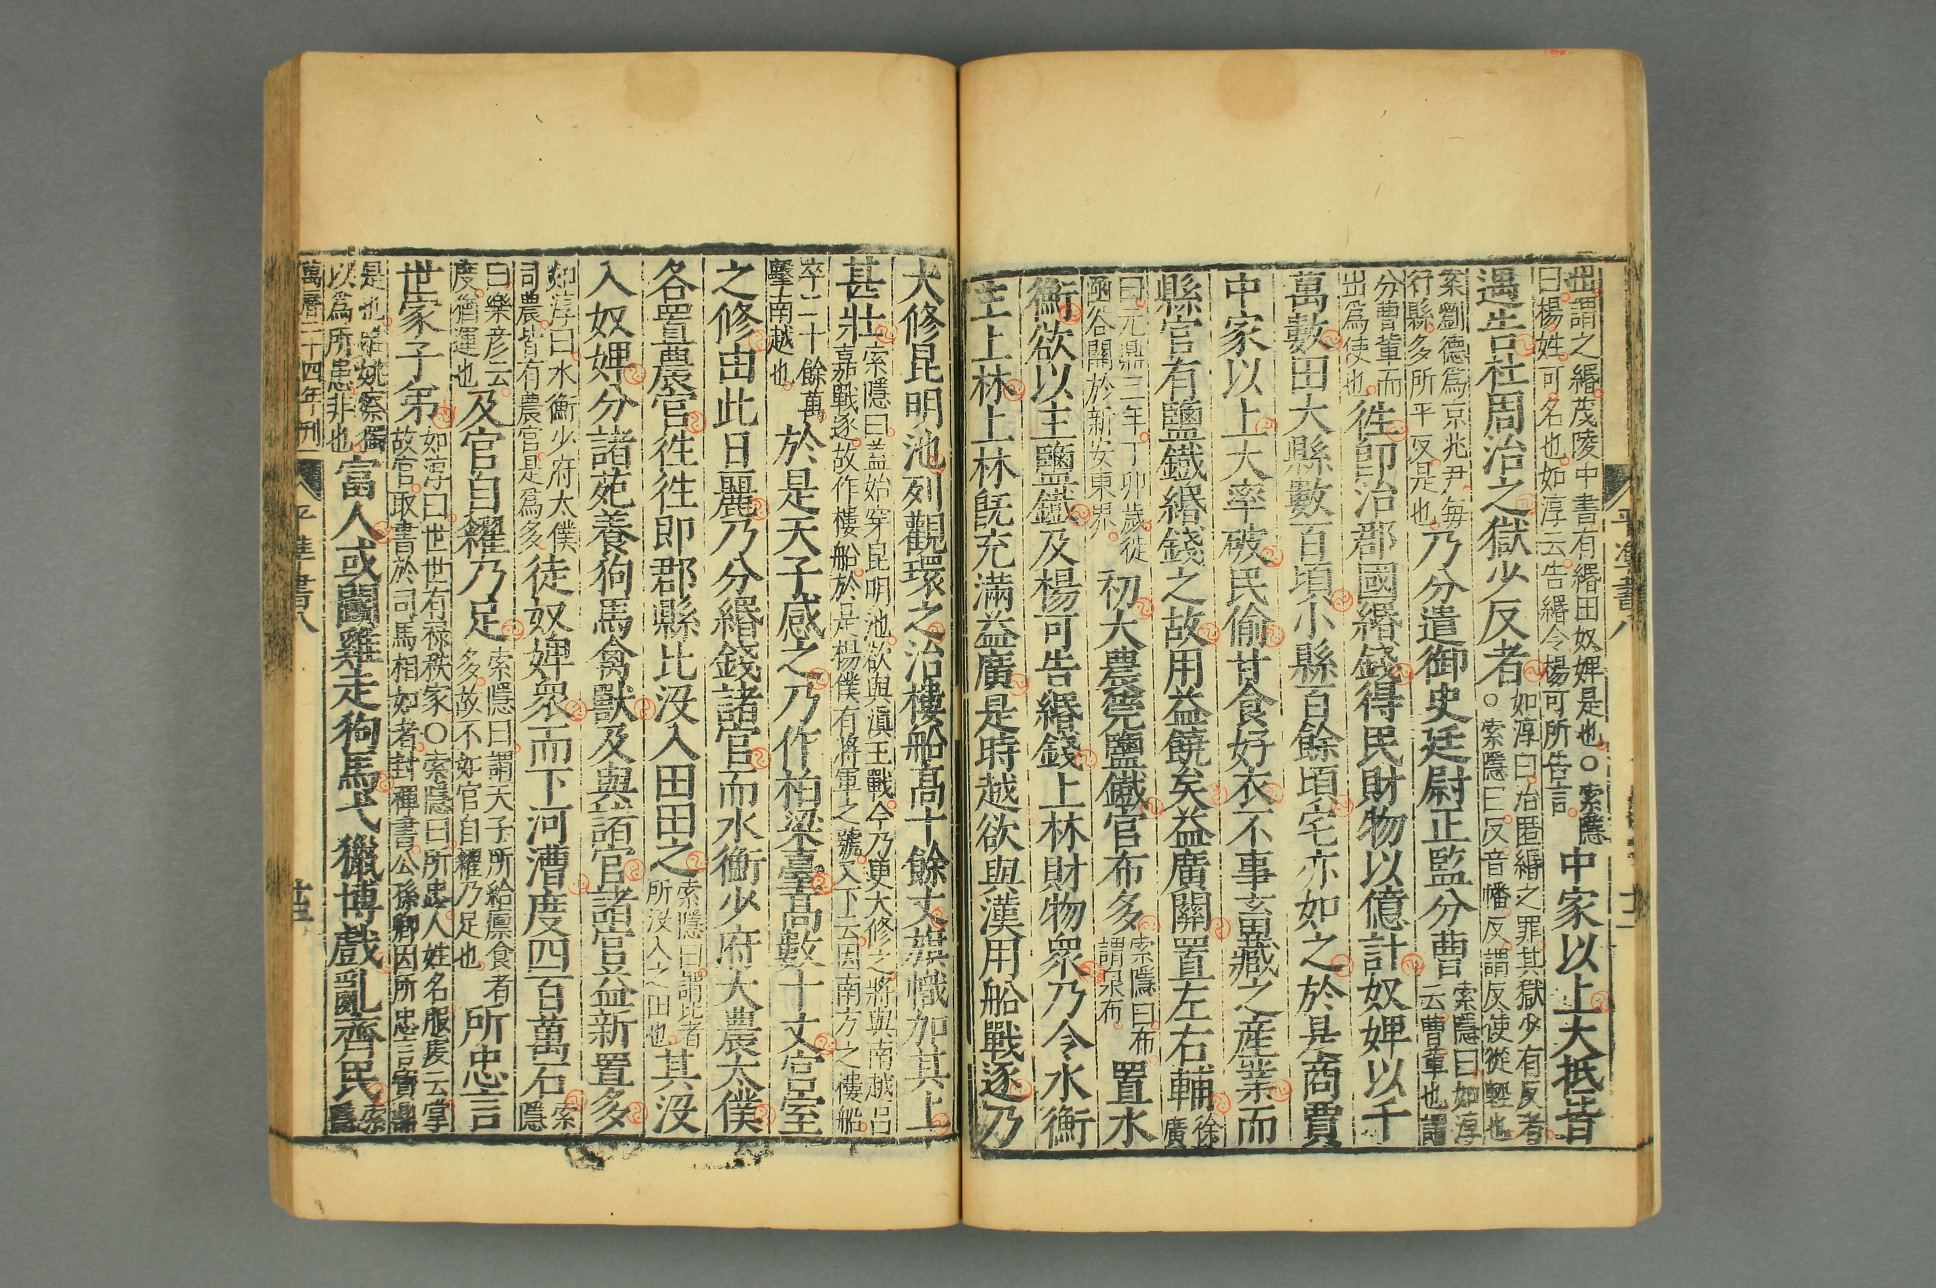 出謂之緡茂陵中書有緡田奴婢是也○索隱
曰楊姓可名也如淳云告緡令楊可所告言
中家以上大抵皆
遇告杜周治之獄少反者
如淳曰治匿緡之罪其獄少有反者
○索隱曰反音幡反謂反使從輕也
案劉德爲京兆尹每
行縣多所平反是也
乃分遣御史廷尉正監分曹
索隱曰如淳
云曹輩也謂
分曹輩而
出爲使也
徃卽治郡國緡錢得民財物以億計奴婢以千
萬數田大縣數百頃小縣百餘頃宅亦如之於是商賈
中家以上大率破民偷甘食好衣不事畜藏之産業而
縣官有鹽鐵緡錢之故用益饒矣益廣關置左右輔
徐
廣
曰元鼎三年丁卯歲徙
函谷關於新安東界
初大農筦鹽鐵官布多
索隱曰布
謂泉布
置水
衡欲以主鹽鐵及楊可告緡錢上林財物衆乃令水衡
主上林上林旣充滿益廣是時越欲與漢用船戰逐乃
大修昆明池列觀環之治樓船高十餘丈旗幟加其上
甚壯
索隱曰盖始穿昆明池欲與滇王戰今乃更大修之將與南越呂
嘉戰逐故作樓船於是楊僕有將軍之號又下云因南方之樓船
卒二十餘萬
擊南越也
於是天子感之乃作柏梁臺高數十丈宮室
之修由此日麗乃分緡錢諸官而水衡少府大農太僕
各置農官徃徃即郡縣比没入田田之
索隱曰謂比者
所没入之田也
其没
入奴婢分諸苑養狗馬禽獸及與諸官諸官益新置多
如淳曰水衡少府太僕
司農皆有農官是爲多
徒奴婢衆而下河漕度四百萬石
索
隱
曰樂彦云
度猶運也
及官自糴乃足
索隱曰謂天子所給廩食者
多故不如官自糴乃足也
所忠言
世家子弟
如淳曰世世有祿秩家○索隱曰所忠人姓名服虔云掌
故官取書於司馬相如者封禪書公孫卿因所忠言寶鼎
是也
姚察獨
以爲所患非也
富人或鬭雞走狗馬弋獵博戲亂齊民
索
萬曆二十四年刊
平準書八